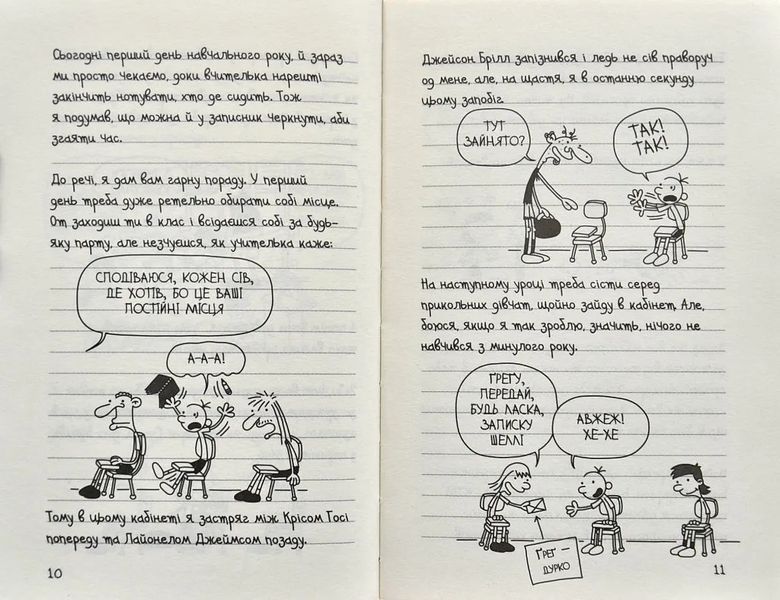 Сьогодні перший день навчального року, й зараз
ми просто чекаємо, доки вчителька нарешті
закінчить нотувати, хто де сидить. Тож
я подумав, що можна й у записник черкнути, аби
згаяти час.
До речі, я дам вам гарну пораду. У перший
день треба дуже ретельно обирати собі місце.
От заходиш ти в клас і всідаєшся собі за будь-
яку парту, але незчуєшся, як учителька каже:
СПОДІВАЮСЯ, КОЖЕН СІВ,
ДЕ ХОТІВ, БО ЦЕ ВАШІ
ПОСТІЙНІ МІСЦЯ
А-А-А!
Тому в цьому кабінеті я застряг між Крісом Госі
попереду та Лайонелом Джеймсом позаду.
10
Джейсон Брілл запізнився і ледь не сів праворуч
од мене, але, на щастя, я в останню секунду
цьому запобіг.
ТУТ
ЗАЙНЯТО?
ТАК!
ТАК!
На наступному уроці треба сісти серед
прикольних дівчат, щойно зайду в кабінет. Але,
боюся, якщо я так зроблю, значить, нічого не
навчився з минулого року.
ҐРЕҐУ,
ПЕРЕДАЙ,
БУДЬ ЛАСКА,
ЗАПИСКУ
ШЕЛЛІ
АВЖЕЖ!
ХЕ-ХЕ
ҐРЕҐ –
ДУРКО
11